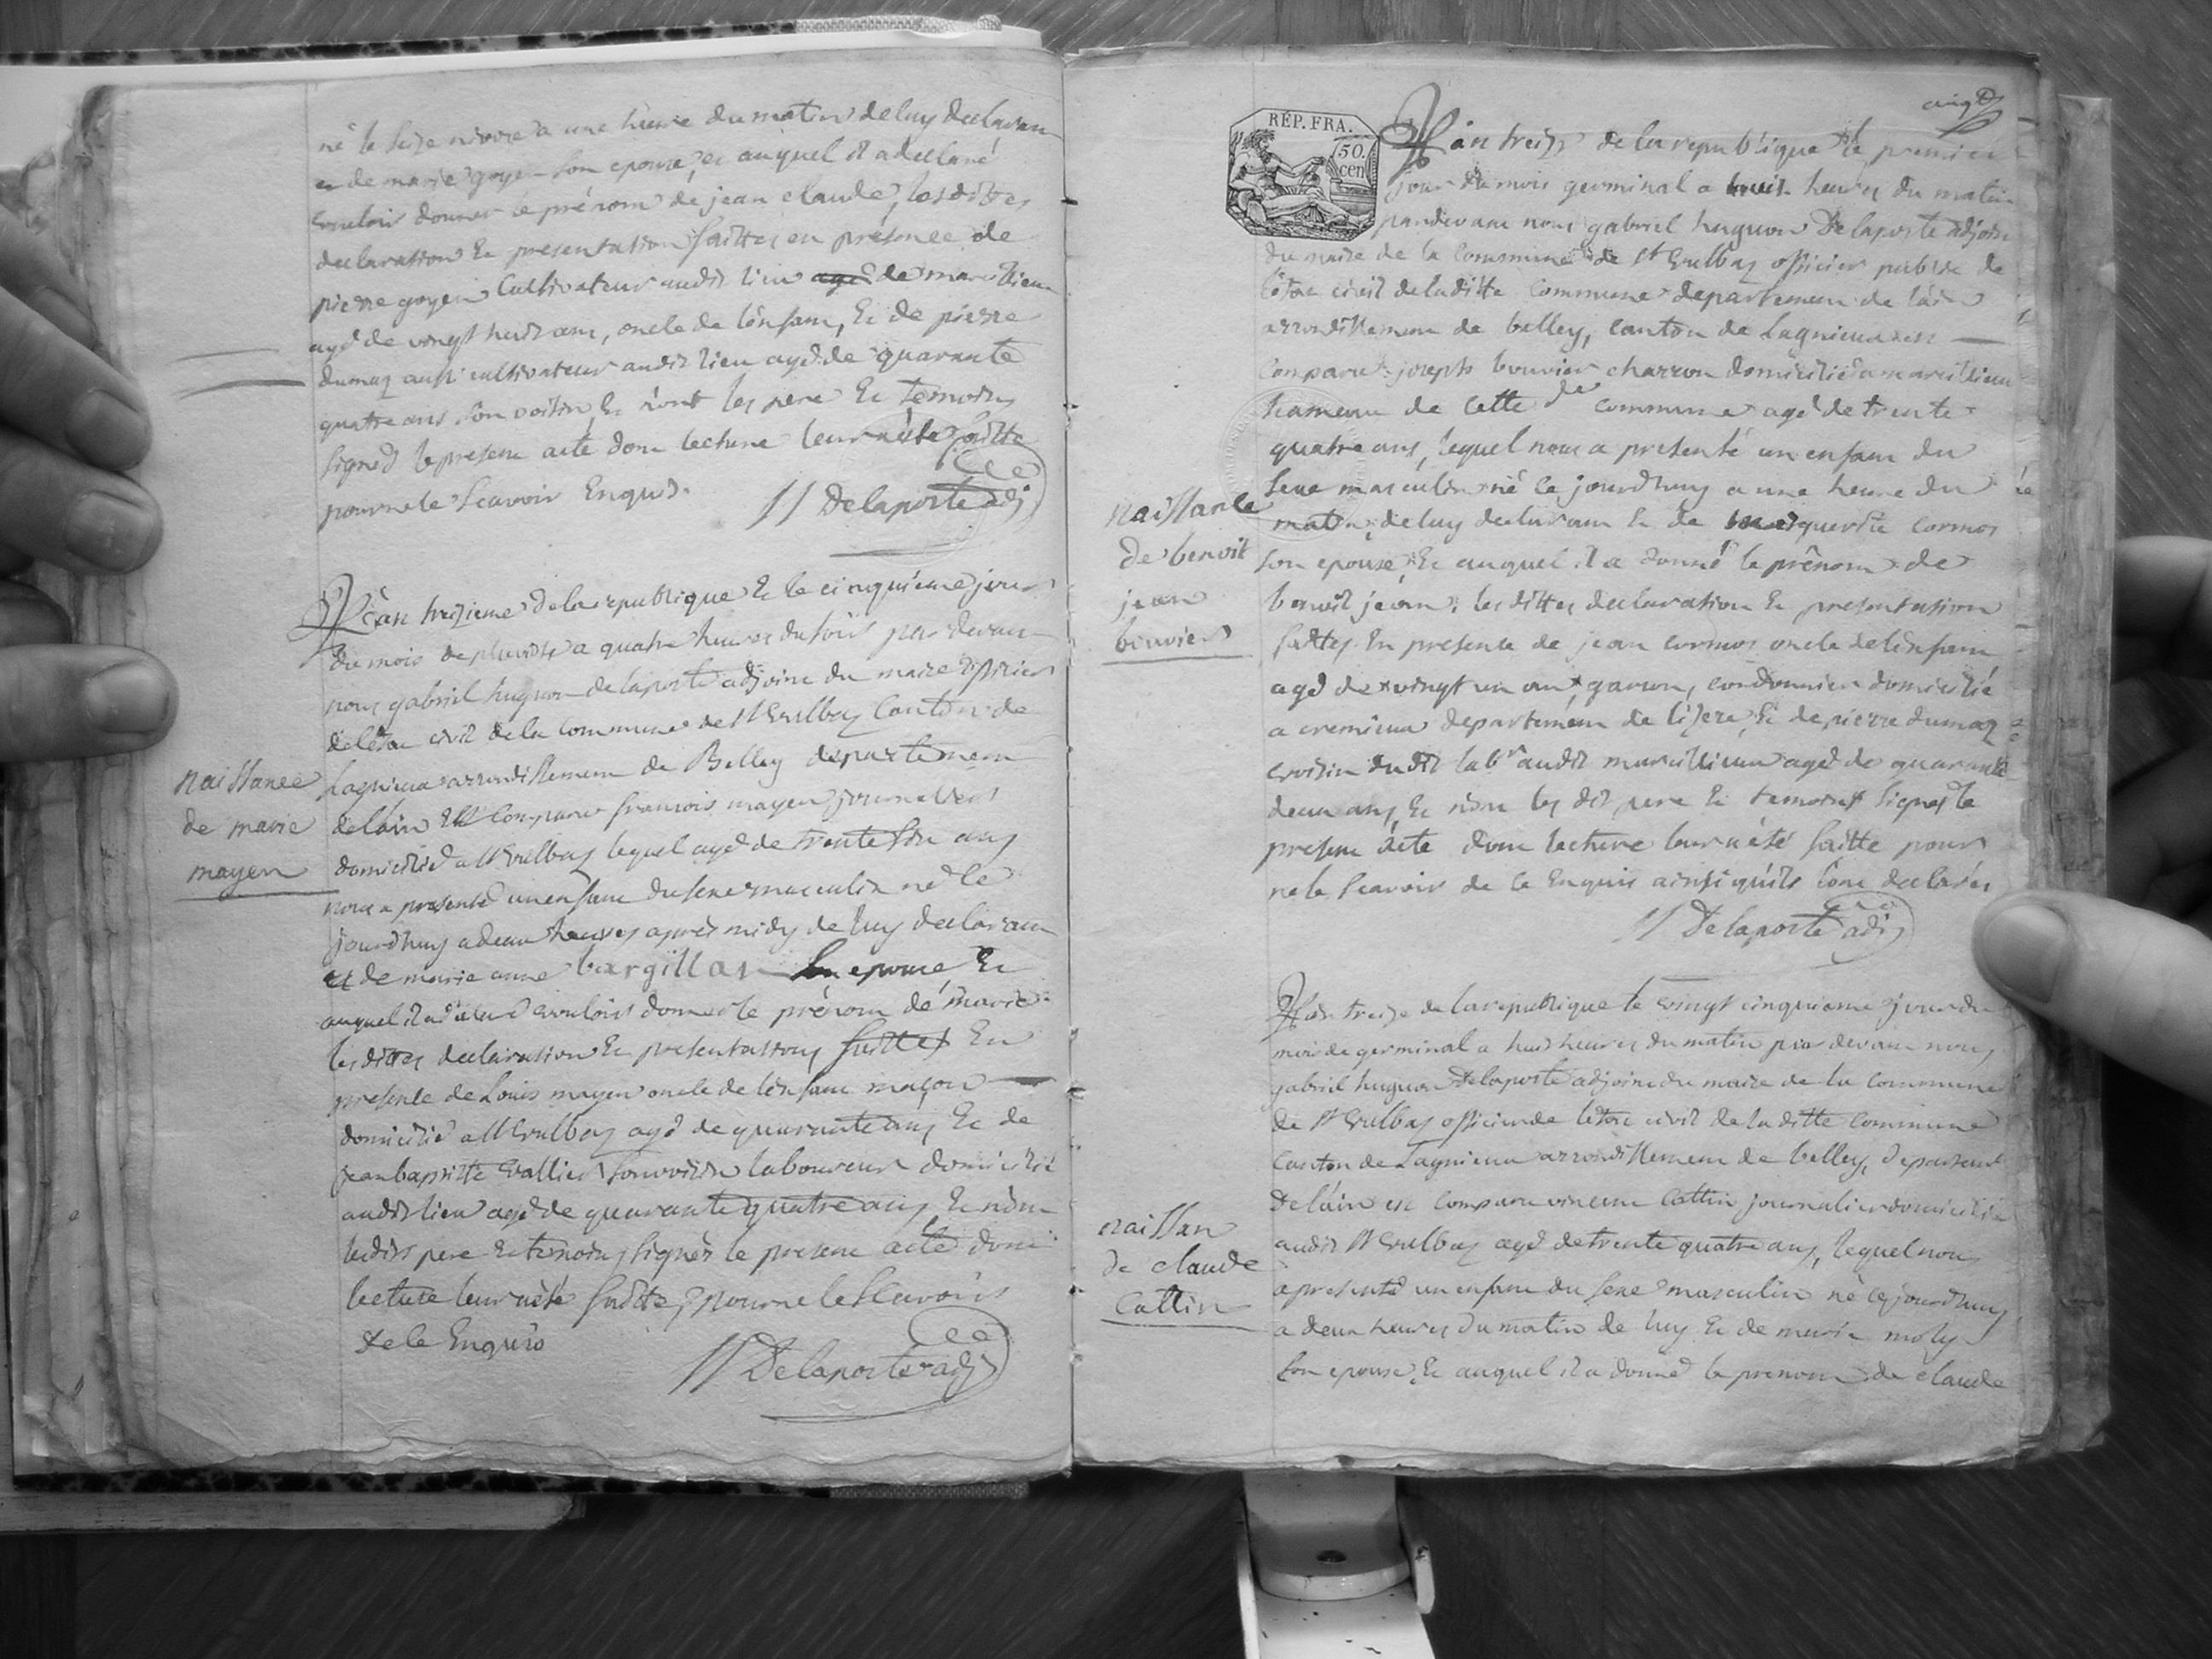 né le seize nivose a une heure du matin de luy declarant
et de marie goyen son epouse, et auquel il a declaré
vouloir donner le prénom de jean claude, les dittes
declaration et presentation faittes en présence de
pierre goyen cultivateur audit lieu agé de marcillieu
agé de vingt huit ans, oncle de lenfant, et de pierre
dumaz aussi cultivateur audit lieu agé de quarante
quatre ans son voisin et n'ont les pere et temoins
signed le present acte dont lecture leur a été faitte
pour ne le scavoir Enquis.
Delaporte adj
Lan treizieme de la republique et le cinquieme jour
du mois de pluviose a quatre heures du soir par devant
nous gabriel hugon delaporte adjoint du maire officier
deletat civil de la commune de St Vulbaz Canton de
naissance
de marie
mayen
Lagnieu arrondissement de Belley departement
delain Est comparu francois mayen journallier
domicilié a St Vulbaz lequel agé de trente six ans
nous a presenté un enfant du sexe masculin né le
jourdhuy a deux heures après midy de luy declarant
et de marie anne bargillat son epouse et
auquel il a déclaré vouloir donner le prénom de marie
les dittes declaration et presentations faittes En
presence de Louis mayen oncle de lenfant maçon
domicilié a St Vulbaz agé de quarante ans et de
jean baptiste Vallier son voisin laboureur domicilié
audit lieu agé de quarante quatre ans et nont
lesdits pere et temoins signés le present acte dont
lecture leur a été faitte, pour ne le scavoir
de le Enquis
Delaporte adj
RÉP. FRA.
50.
cen
Lan treize de la republique le premier
jour du mois germinal a huit heures du matin
pardevant nous gabriel hugon Delaporte adjoint
du maire de la commune de St Vulbaz officier public de
létat civil de laditte commune departement de lain
arrondissement de belley, canton de Lagnieu est
Comparu joseph bouvier charron domicilié a marcillieu
hameau de cette de commune agé de trente
quatre ans, lequel nous a presenté un enfant du
naissance
de benoit
jean
bouvier
sexe masculin né ce jourdhuy a une heure du
matin, de luy declarant et de marguerite cormoz
son epouse, et auquel il a donné le prénom de
benoit jean, les dittes declaration et presentation
faittes En presence de jean cormoz oncle de lenfant
agé de vingt un ans, garcon, cordonnier domicilié
a cremieu departement de lizere, et de pierre dumaz
voisin dudit labr audit marcillieu agé de quarante
deux ans, et n'ont les dit pere et temoins signés le
present acte dont lecture leur a été faitte pour
ne le scavoir de ce Enquis ainsi qu'ils l'ont declarés
Delaporte adj
Lan treize de la republique le vingt cinquieme jour du
mois de germinal a huit heures du matin par devant nous
gabriel hugon Delaporte adjoint du maire de la commune
de St Vulbaz officier de létat civil de laditte commune
canton de Lagnieu arrondissement de belley, departement
naissan
de claude
Cottin
delain est comparu vincent Cottin journalier domicilié
audit St Vulbaz agé de trente quatre ans, lequel nous
a presenté un enfant du sexe masculin né ce jourdhuy
a deux heures du matin de luy et de marie moly
son epouse, et auquel il a donné le prenom de claude